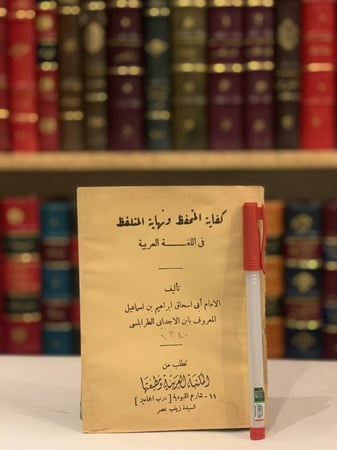 كفاية المتحفظ ونهاية المتلفظ
فى اللغــــة العربية
تأليف
الإمام أبى اسحاق ابراهيم بن اسماعيل
المعروف بابن الاجدابى الطرابلسى
١٣٤٠
تطلب من
المكتبة العربية ومطبعتها
١١ - شارع اللبودية [ درب الجماميز ]
السيدة زينب بمصر